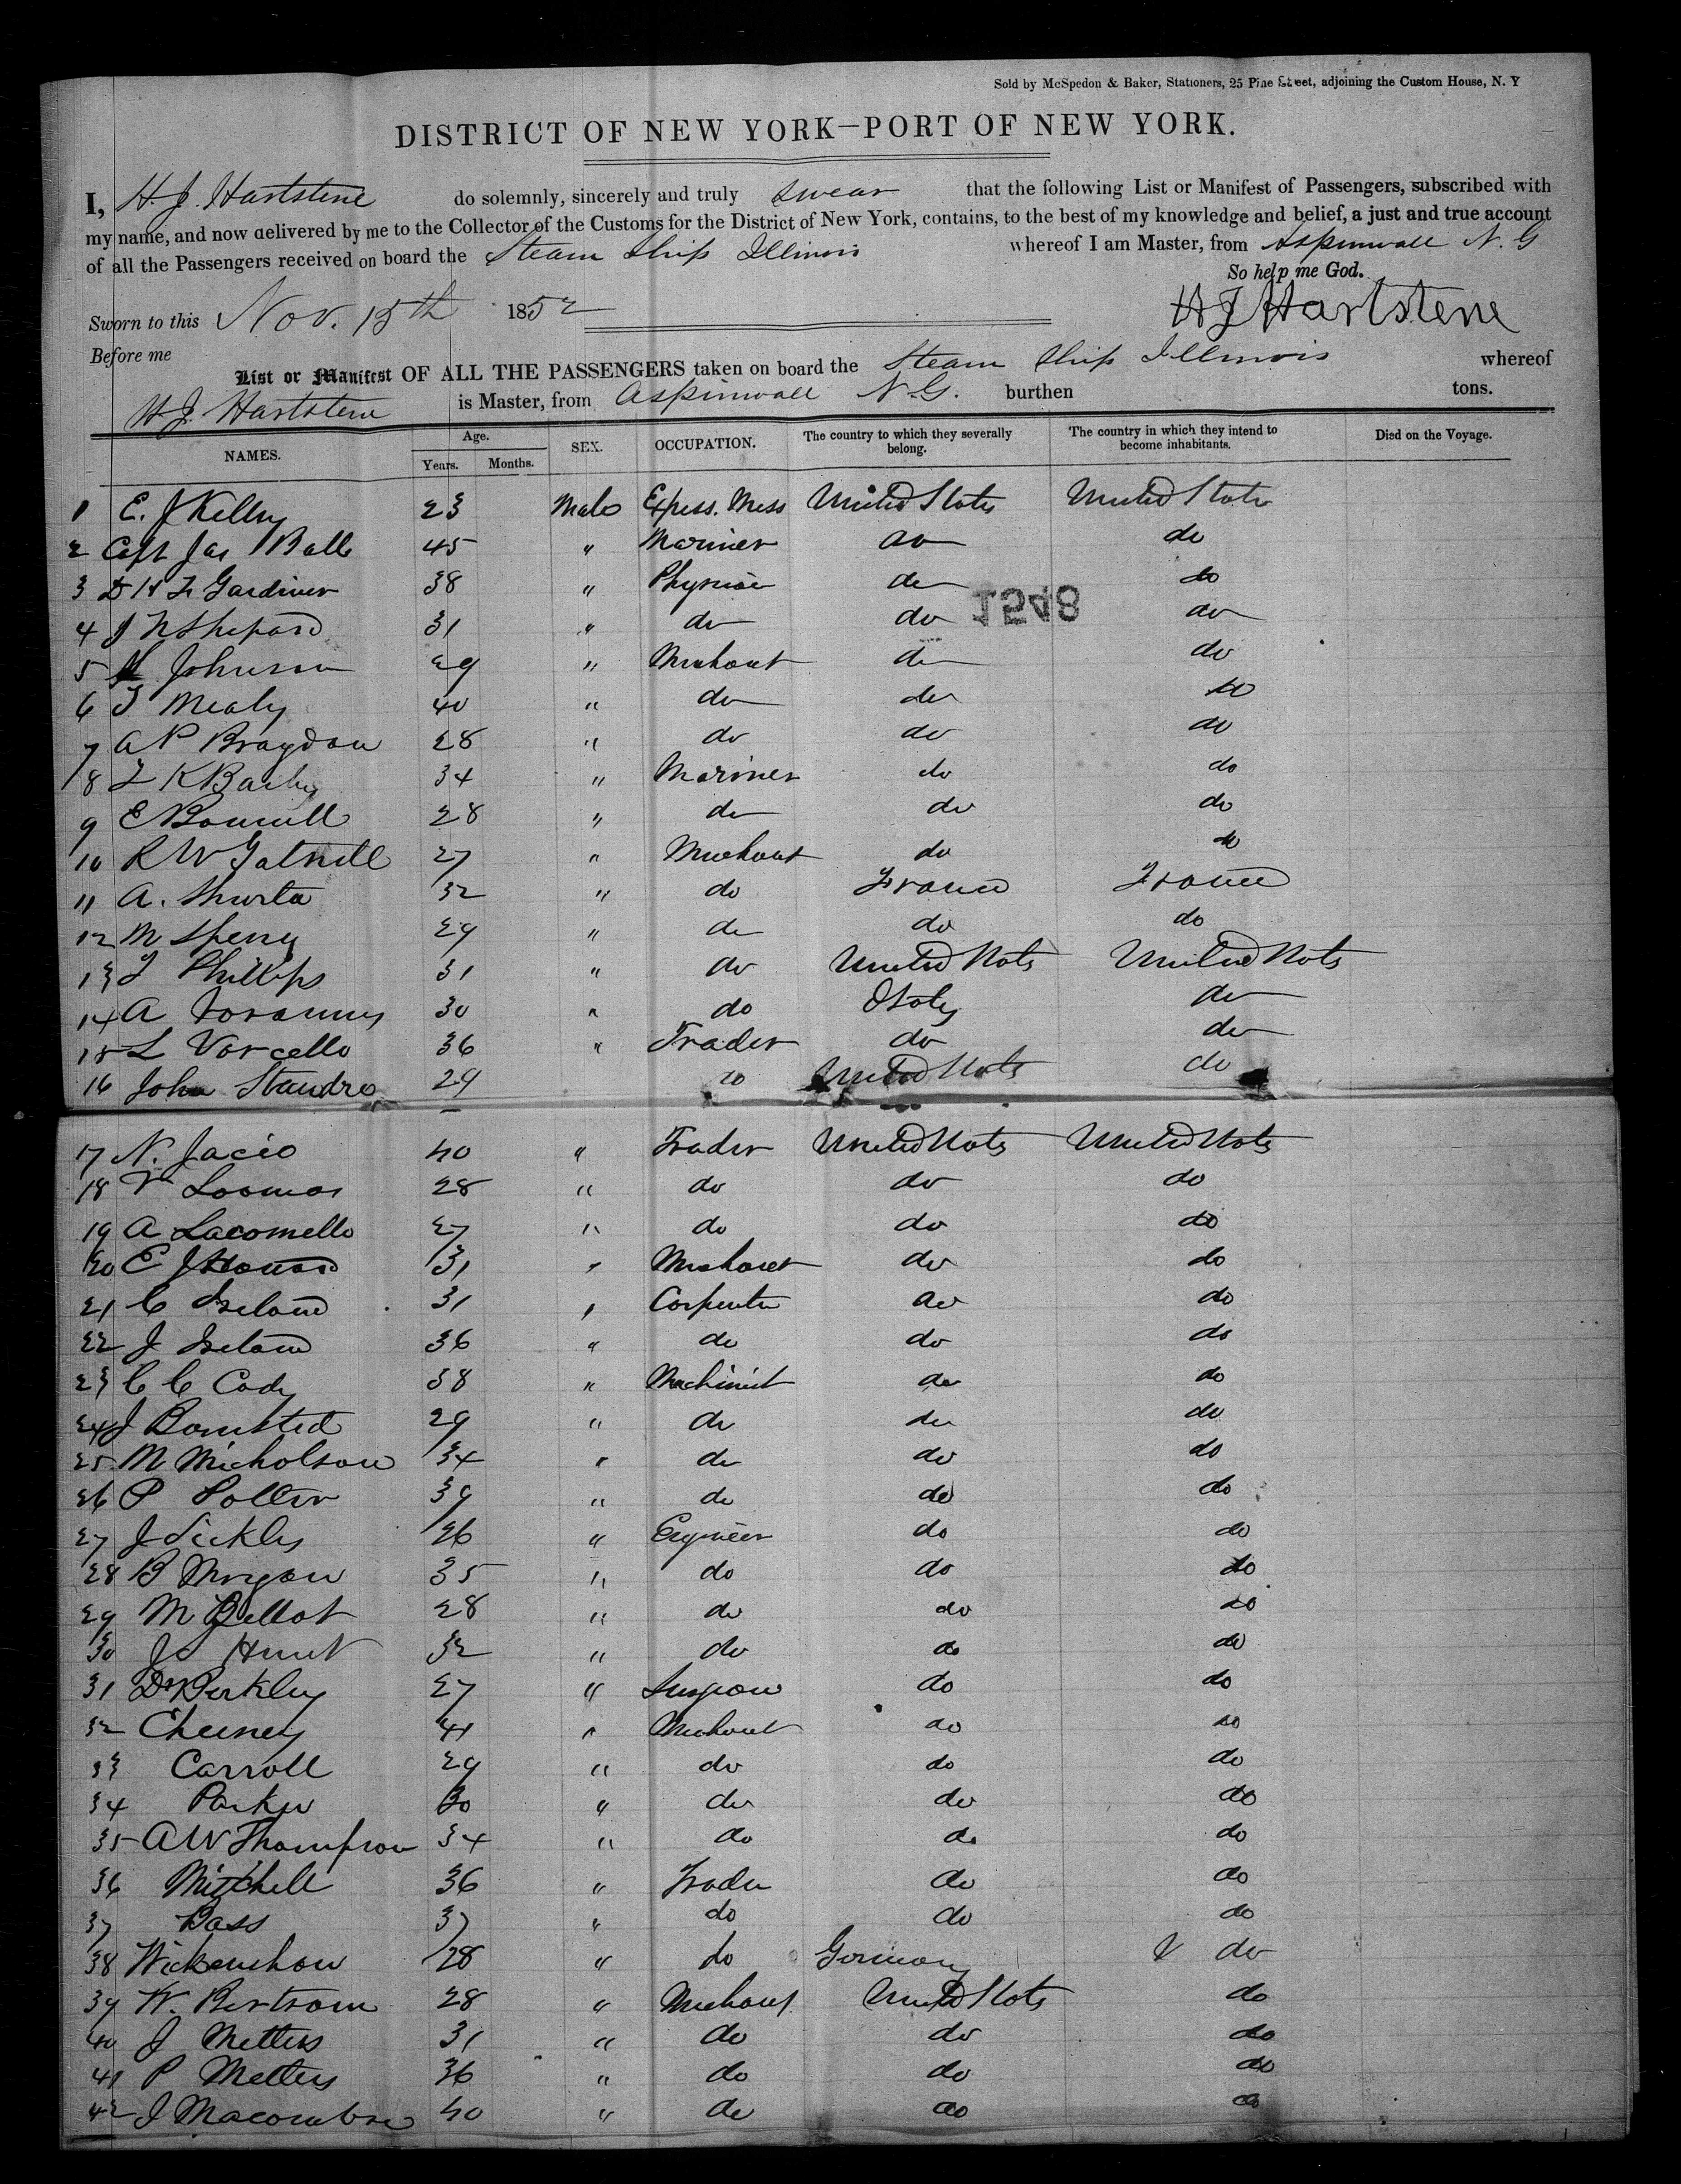 Sold by McSpedon & Baker, Stationers, 25 Pine Street, adjoining the Custom House, N. Y
DISTRICT OF NEW YORK—PORT OF NEW YORK.
I, H. J. Hartstene do solemnly, sincerely and truly swear that the following List or Manifest of Passengers, subscribed with
my name, and now delivered by me to the Collector of the Customs for the District of New York, contains, to the best of my knowledge and belief, a just and true account
of all the Passengers received on board the Steam Ship Illinois whereof I am Master, from Aspinwall N. G
So help me God.
Sworn to this Nov. 15th 1852
H J Hartstene
Before me
List or Manifest OF ALL THE PASSENGERS taken on board the Steam Ship Illinois whereof
H. J. Hartstene is Master, from Aspinwall N. G. burthen tons.
NAMES. Age. Years. Months. SEX. OCCUPATION. The country to which they severally belong. The country in which they intend to become inhabitants. Died on the Voyage.
1 E. J Kelley 23 Male Express. Mess United States United States
2 Capt Jas Ball 45 " Mariner do do
3 Dr H Gardiner 38 " Physician do do
1548
4 J N Shepard 31 " do do do
5 Johnson 29 " Merchant do do
6 Mealy 40 " do do do
7 A P Bragdon 28 " do do do
8 K Bailey 34 " Mariner do do
9 E Bonnell 28 " do do do
10 R W 27 " Merchant do do
11 A. 32 " do France France
12 M Sperry 29 " do do do
13 Phillips 31 " do United States United States
14 A 30 " do Italy do
15 L Vorcello 36 " Trader do do
16 John Staudro 29 do United States do
17 N. Jacio 40 " Trader United States United States
18 V 28 " do do do
19 A Lacomello 27 " do do do
20 E J Howard 31 " Merchant do do
21 C Ireland 31 " Carpenter do do
22 J Ireland 36 " do do do
23 C C Cody 38 " Machinist do do
24 J Bomsted 29 " do do do
25 M Nicholson 34 " do do do
26 P Potter 39 " do do do
27 J Sickles 26 " Engineer do do
28 B Morgan 35 " do do do
29 M Bellot 28 " do do do
30 Js Hunt 32 " do do do
31 Dr Berkley 27 " Surgeon do do
32 Cheeney 41 " Merchant do do
33 Carroll 29 " do do do
34 Parker 30 " do do do
35 A W Thompson 34 " do do do
36 Mitchell 36 " Trader do do
37 Bass 37 " do do do
38 Wickenshow 28 " do Germany do
39 W. Bertram 28 " Merchant United States do
40 J Metters 31 " do do do
41 P Metters 36 " do do do
42 J Macomber 40 " do do do